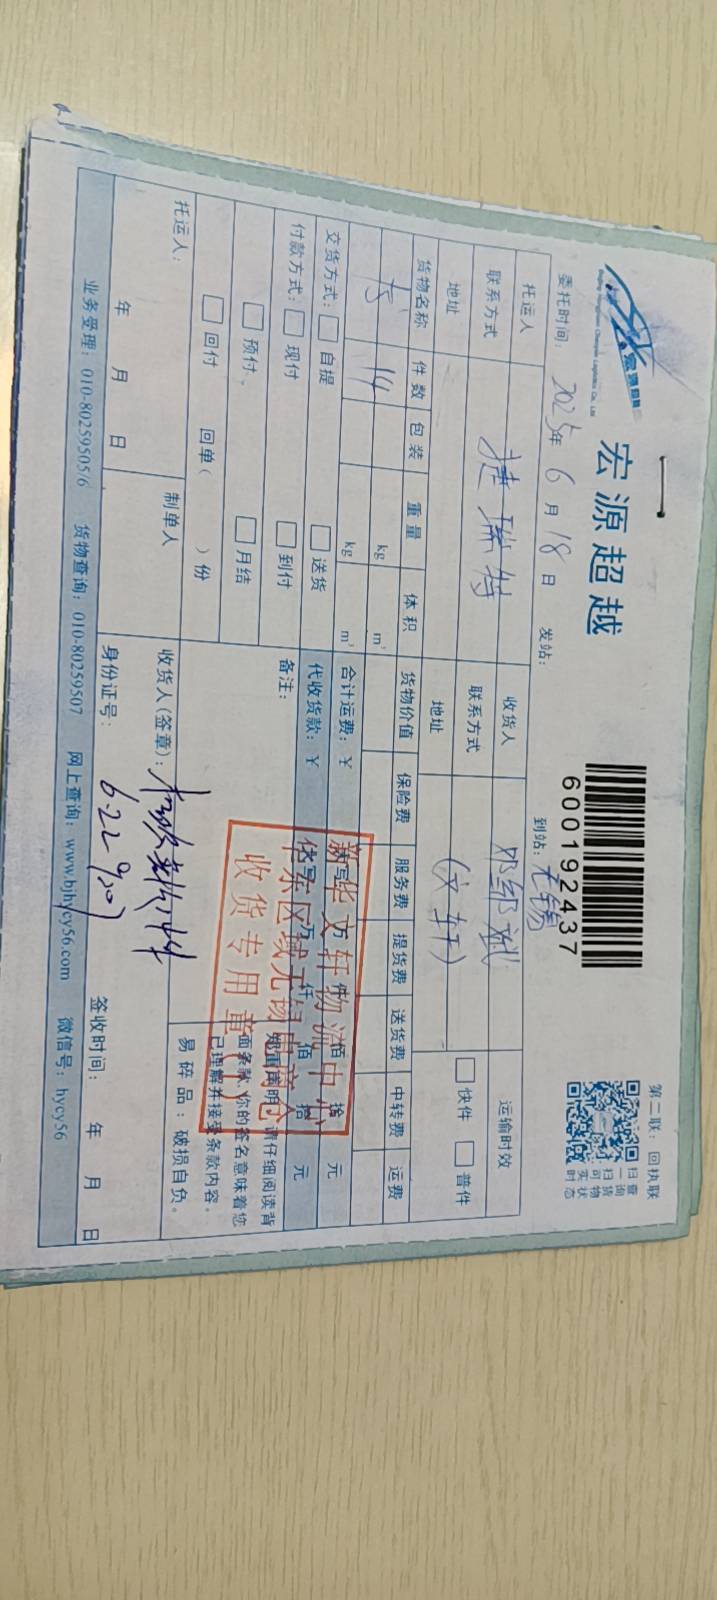 宏源超越
宏源超越
第二联：回执联
600192437
扫一扫可实时
查询货物状态
委托时间：2025年6月18日 发站： 到站：无锡
托运人 捷瑞特 收货人 邓绍斌 运输时效
联系方式 联系方式 快件 普件
地址 地址 （文轩）
货物名称 件数 包装 重量 体积 货物价值 保险费 服务费 提货费 送货费 中转费 运费
书 14 kg m³
kg m³
交货方式： 自提 送货 合计运费：￥ 拾 元
付款方式： 现付 到付 代收货款：￥ 万 仟 佰 拾 元
预付 月结 备注：
回付 回单（ ）份
郑重声明：请仔细阅读背
面条款，你的签名意味着您
已理解并接受条款内容。
易碎品：破损自负。
新华文轩物流中心
华东区域无锡电商仓
收货专用章
托运人： 制单人 收货人（签章）：
年 月 日 身份证号： 6.22 签收时间： 年 月 日
业务受理：010-80259505/6 货物查询：010-80259507 网上查询：www.bjhycy56.com 微信号：hycy56